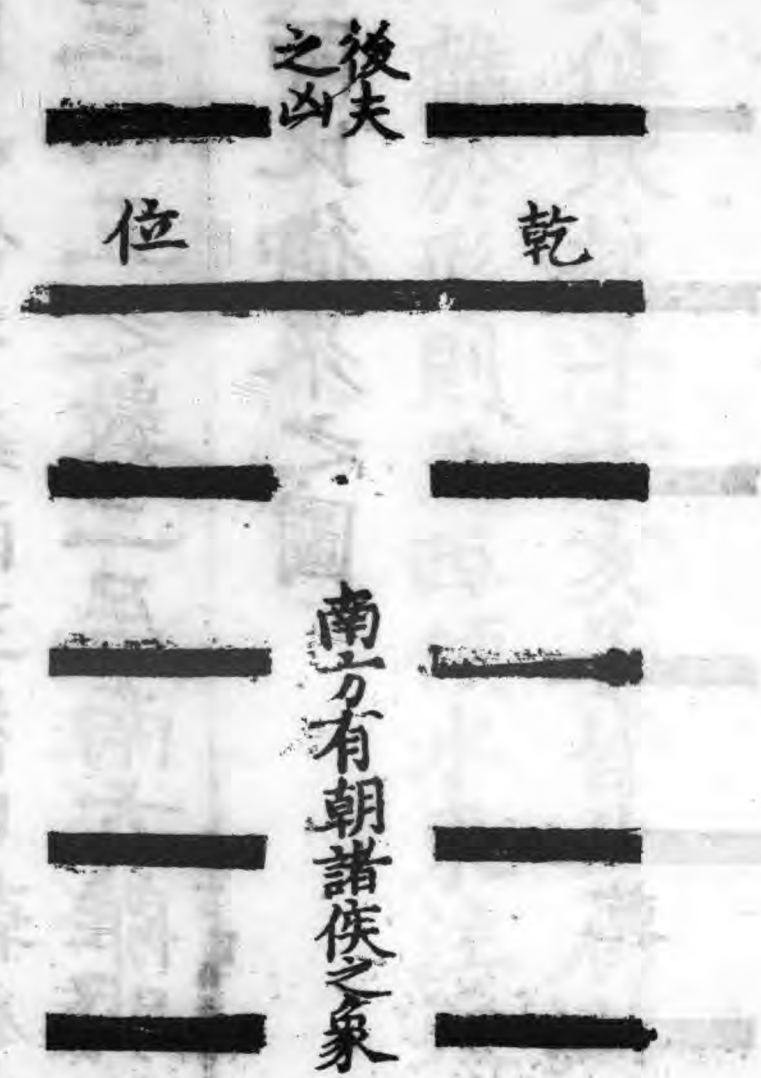 後夫
之凶
乾位
南方有朝諸侯之象